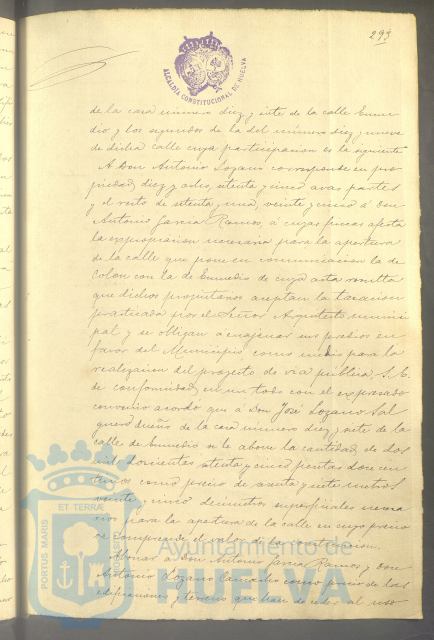 293
ALCALDÍA CONSTITUCIONAL DE HUELVA
de la casa número diez y siete de la calle Enme
dio y los segundos de la del número diez y nueve
de dicha calle cuya participación es la siguiente
A Don Antonio Lozano corresponde en pro
piedad diez y ocho, setenta y cinco avas partes
y el resto de setenta y una, veinte y cinco á Don
Antonio García Ramos, á cuyas fincas afecta
la expropiación necesaria para la apertura
de la calle que pone en comunicación la de
Colón con la de Enmedio de cuya acta resulta
que dichos propietarios aceptan la tasación
practicada por el Señor Arquitecto munici
pal y se obligan á enajenar sus predios en
favor del Municipio, como medio para la
realización del proyecto de vía pública, S. E.
de conformidad en un todo con el expresado
convenio acordó que á Don José Lozano Sal
guero dueño de la casa número diez y siete de la
calle de Enmedio se le abone la cantidad de dos
mil doscientas setenta y cinco pesetas doce cén
timos como precio de y siete metros
veinte y cinco decímetros superficiales necesa
rios para la apertura de la calle en cuyo precio
se comprende el valor de la construcción.
Abonar á Don Antonio García Ramos y Don
Antonio Lozano como precio de las
edificaciones y terreno que han de ceder al uso
PORTUS MARIS
ET TERRÆ
Ayuntamiento de
HUELVA